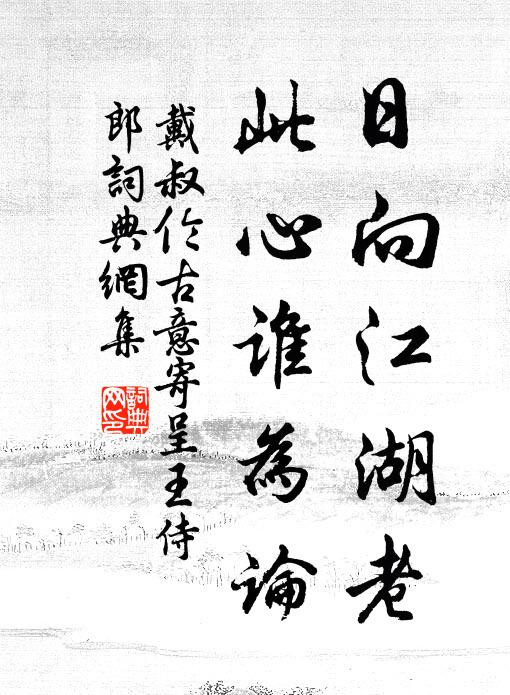 日向江湖老
此心誰為論
戴叔伦古意寄呈王侍
郎詞典網集
詞典
网印